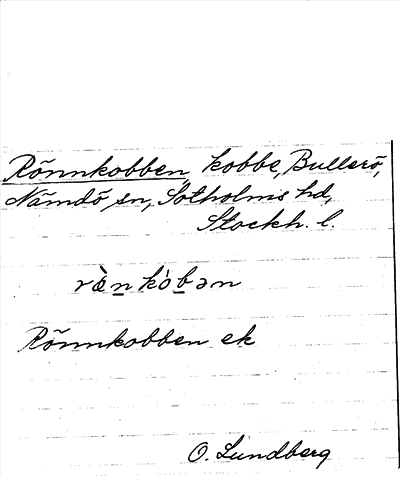 Rönnkobben, kobbe, Bullerö,
Nämdö sn, Sotholms hd,
Stockh. l.
ràn kób̲ən
Rönnkobben ek
O. Lundberg